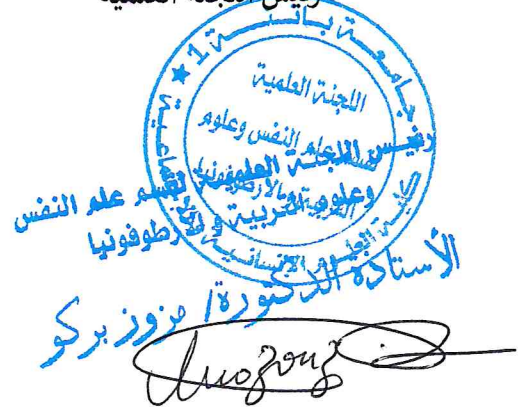 رئيس اللجنة العلمية
جامعة باتنة 1
اللجنة العلمية
قسم علم النفس وعلوم
التربية والأرطوفونيا
كلية العلوم الإنسانية
رئيس اللجنة العلمية لقسم علم النفس
وعلوم التربية والأرطوفونيا
الأستاذة الدكتورة/ مزوز بركو